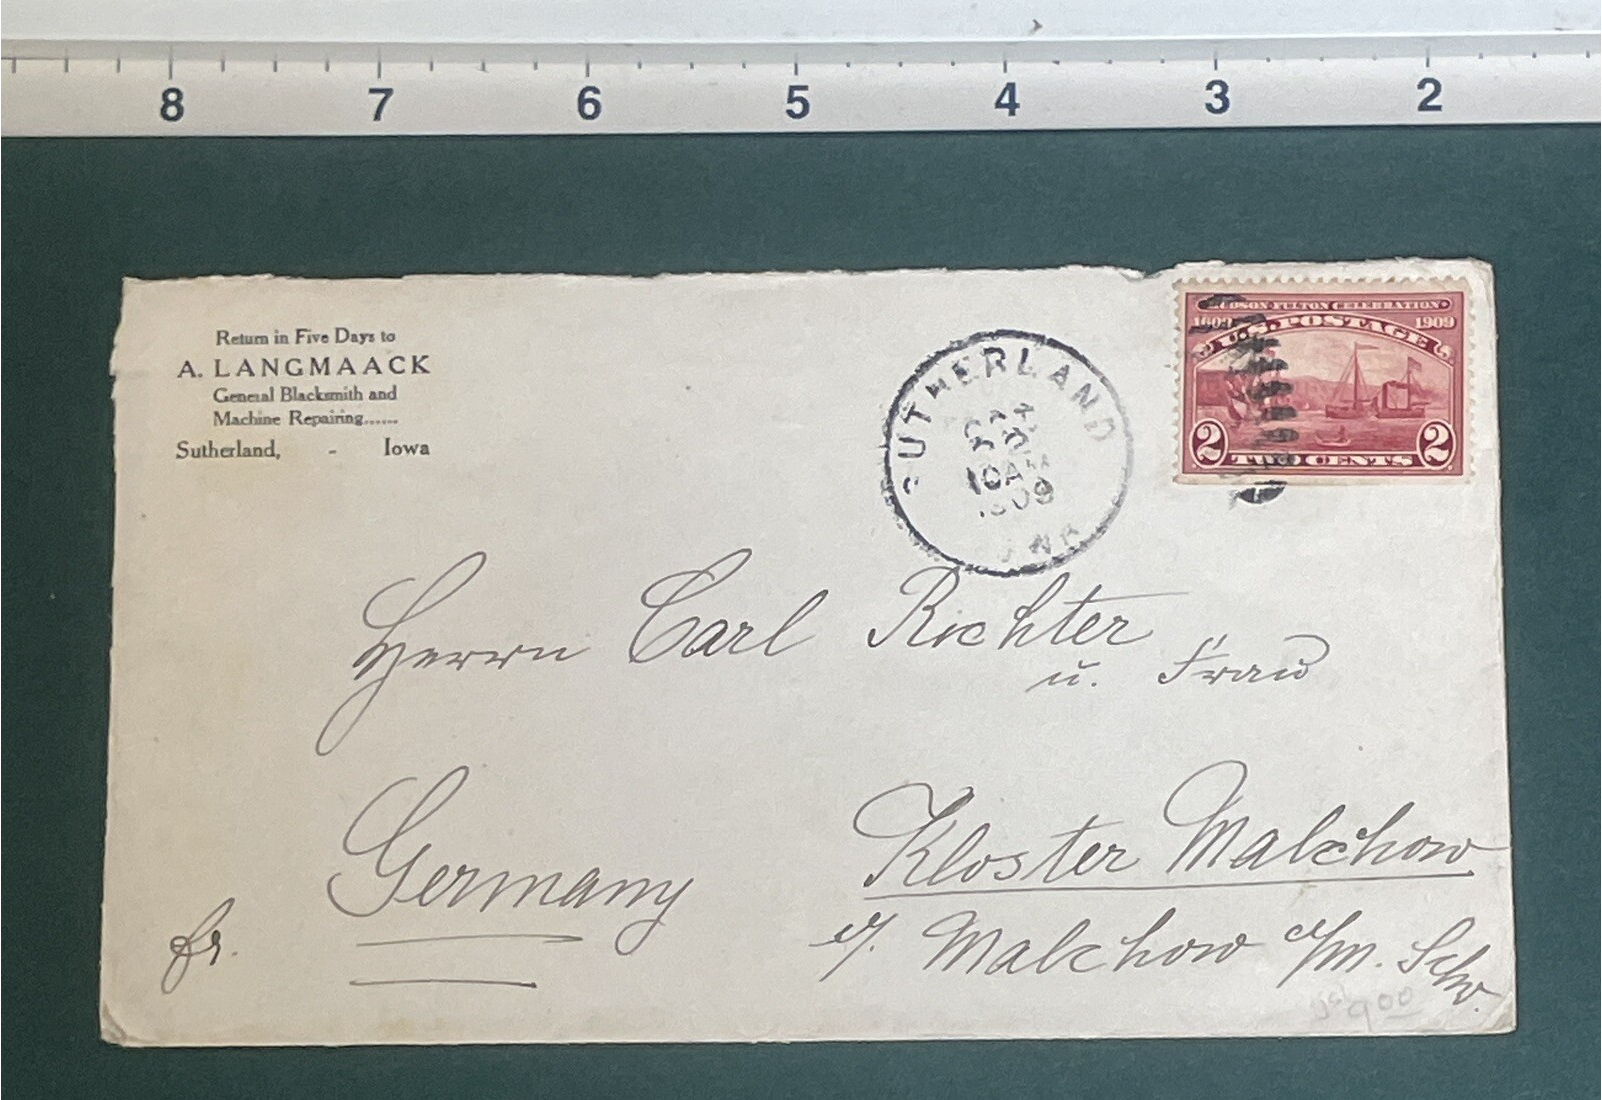 8 7 6 5 4 3 2
Return in Five Days to
A. LANGMAACK
General Blacksmith and
Machine Repairing......
Sutherland, - Iowa
SUTHERLAND
10 AM
1909
HUDSON-FULTON CELEBRATION
1609 1909
U.S. POSTAGE
2 TWO CENTS 2
Herrn Carl Richter
u. Frau
Germany
Kloster Malchow
fr.
Malchow i/M. Schw.
900